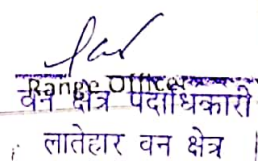 Range Officer
वन क्षेत्र पदाधिकारी
लातेहार वन क्षेत्र